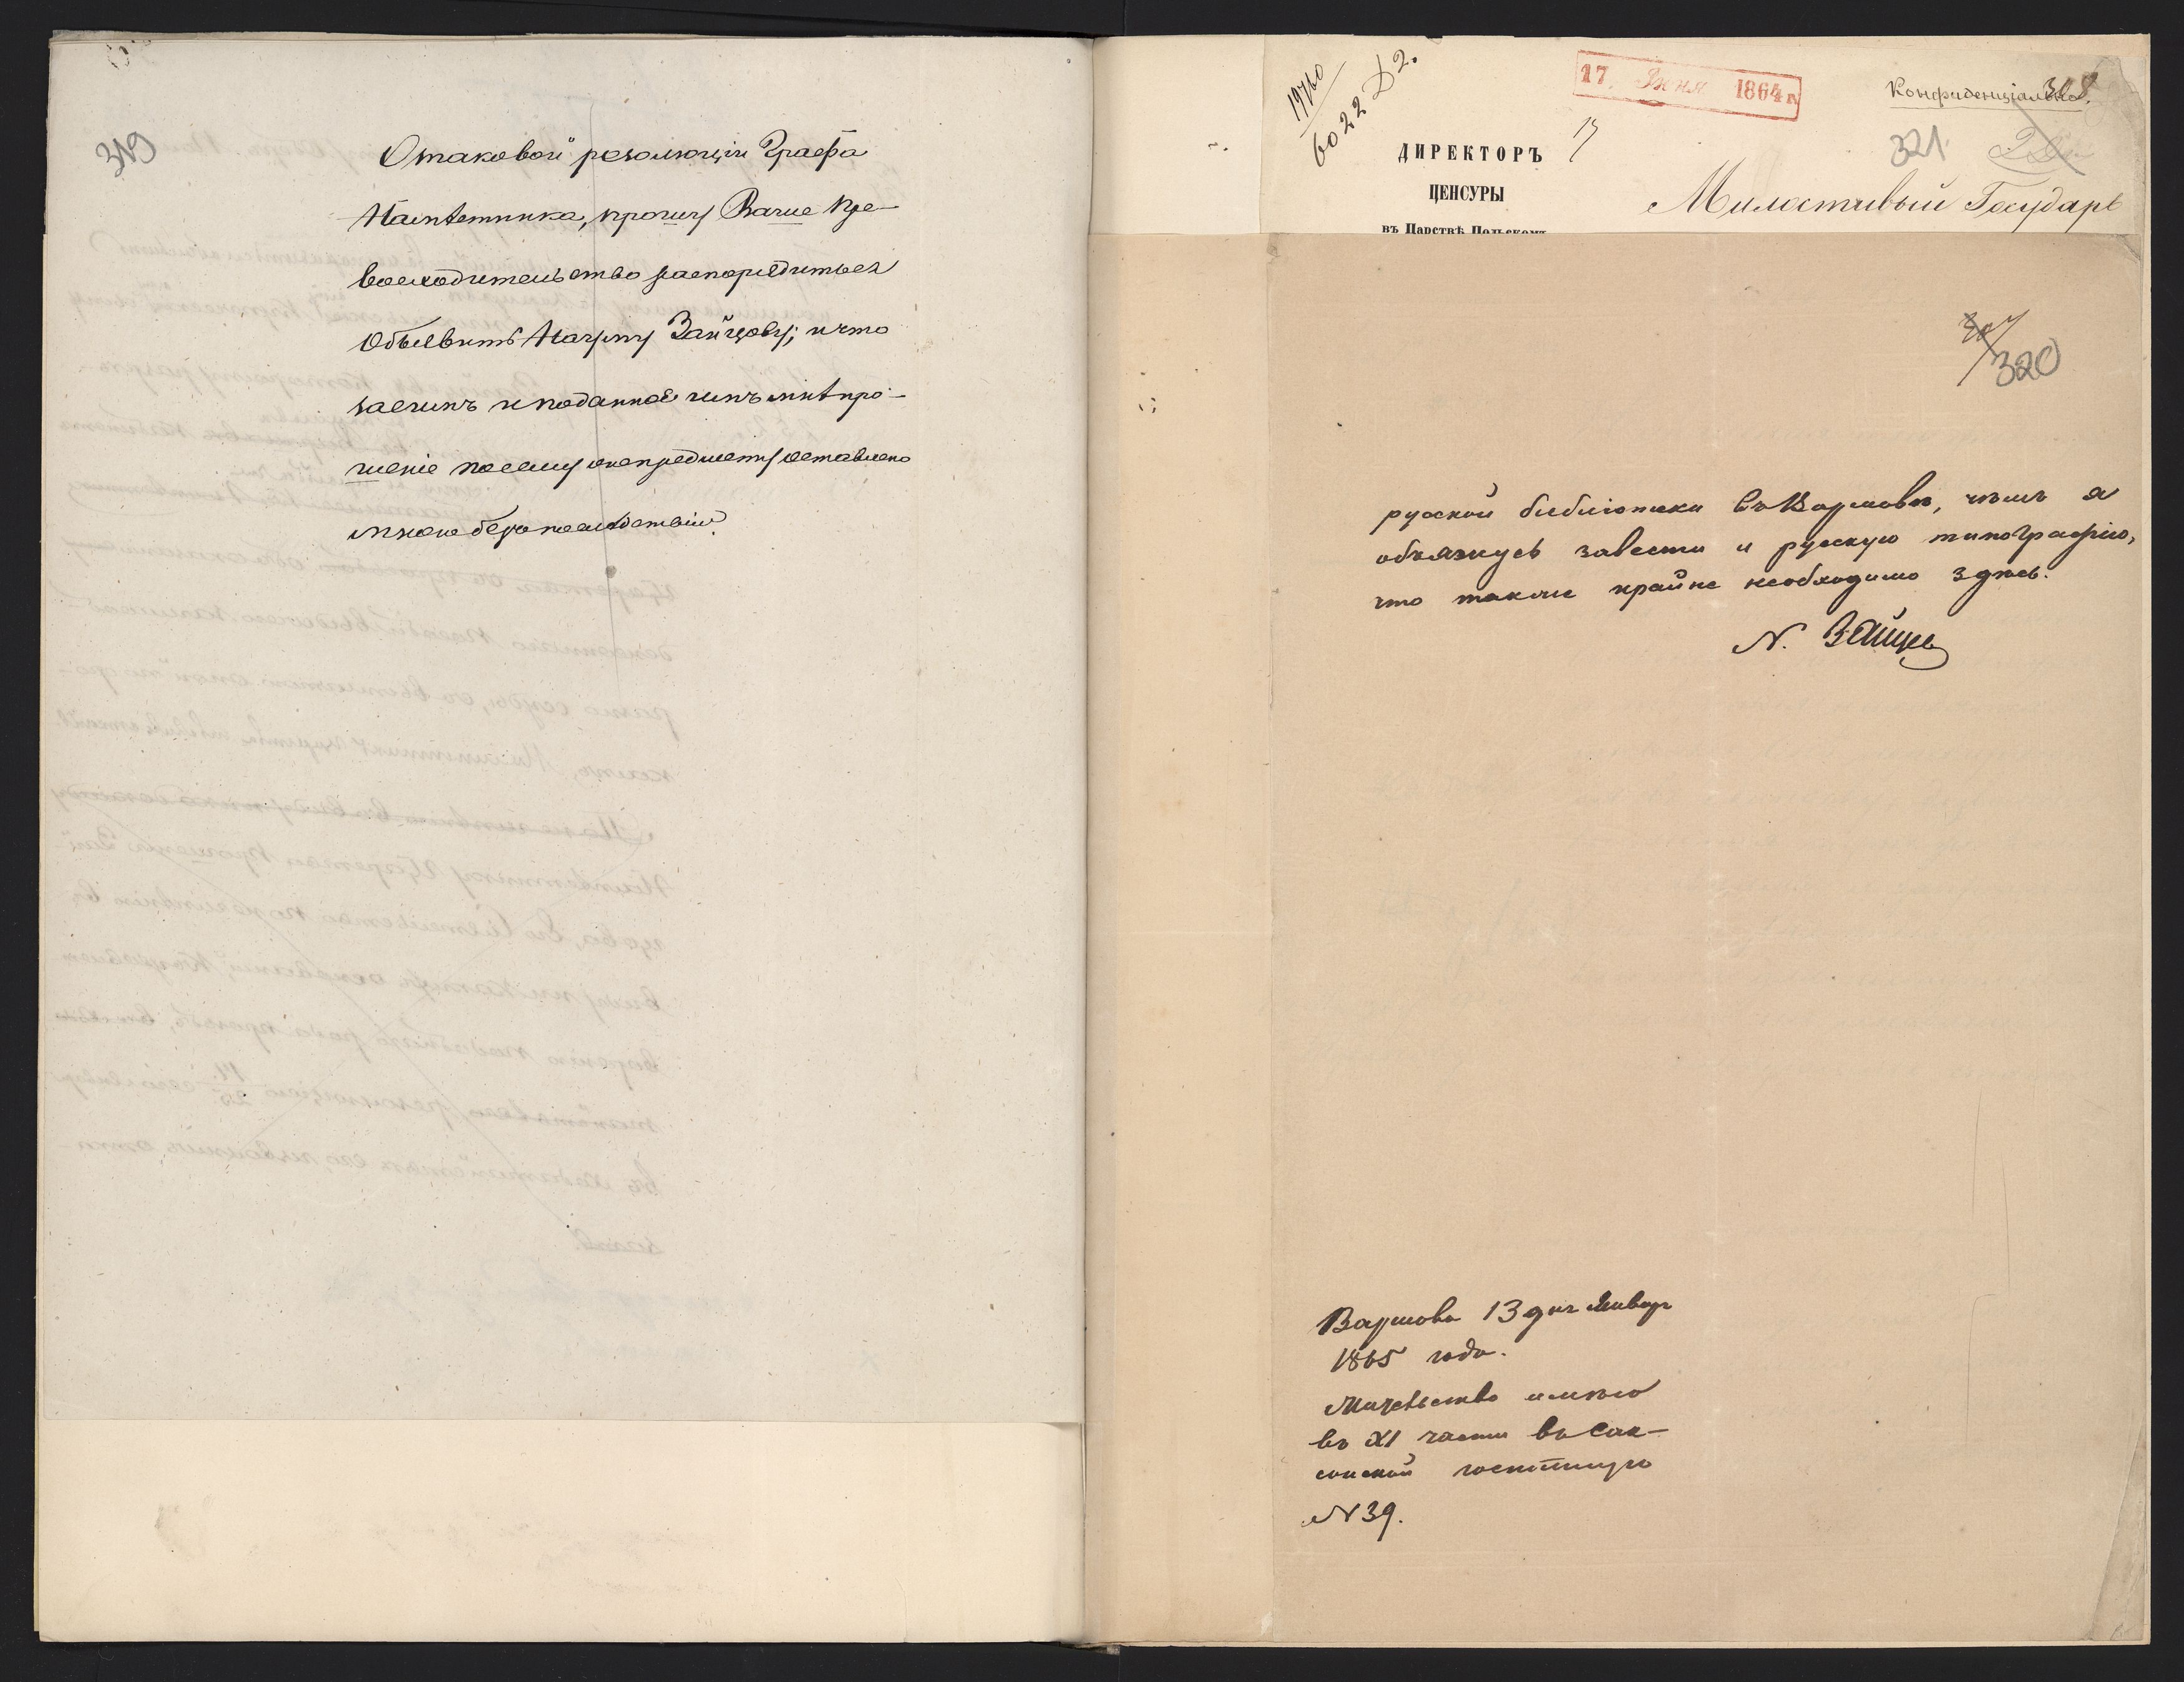 319
О таковой резолюціи Графа
Намѣстника, прошу Ваше Пре-
восходительство распорядиться
объявить Маіору Зайцову; и что
за симъ и поданное имъ мнѣ про-
шеніе по сему же предмету оставлено
мною безъ послѣдствій.
19760
6022 Д2.
17 Іюня 1864 г.
Конфиденціально.
308
321
ДИРЕКТОРЪ
ЦЕНСУРЫ
въ Царствѣ Польскомъ
Милостивый Государь
307
320
русской библіотеки въ Варшавѣ, чѣмъ я
обязуюсь завести и русскую типографію,
что также крайне необходимо здѣсь.
N. Зайцев
Варшава 13 дня Января
1865 года.
Жительство имѣю
въ XI части въ Сак-
сонской гостиницѣ
N 39.